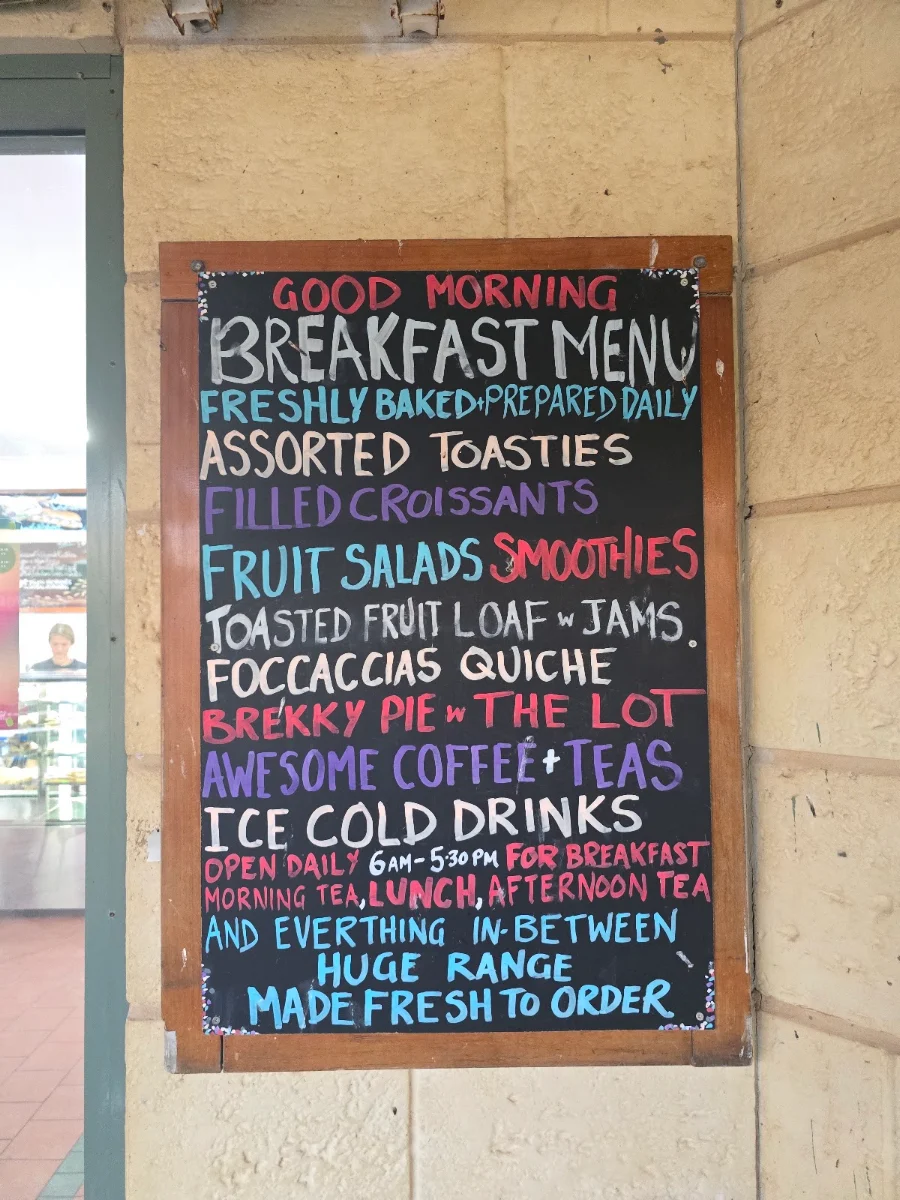 GOOD MORNING
BREAKFAST MENU
FRESHLY BAKED+PREPARED DAILY
ASSORTED TOASTIES
FILLED CROISSANTS
FRUIT SALADS SMOOTHIES
TOASTED FRUIT LOAF w JAMS
FOCCACCIAS QUICHE
BREKKY PIE w THE LOT
AWESOME COFFEE+TEAS
ICE COLD DRINKS
OPEN DAILY 6AM-5:30PM FOR BREAKFAST
MORNING TEA, LUNCH, AFTERNOON TEA
AND EVERTHING IN-BETWEEN
HUGE RANGE
MADE FRESH TO ORDER